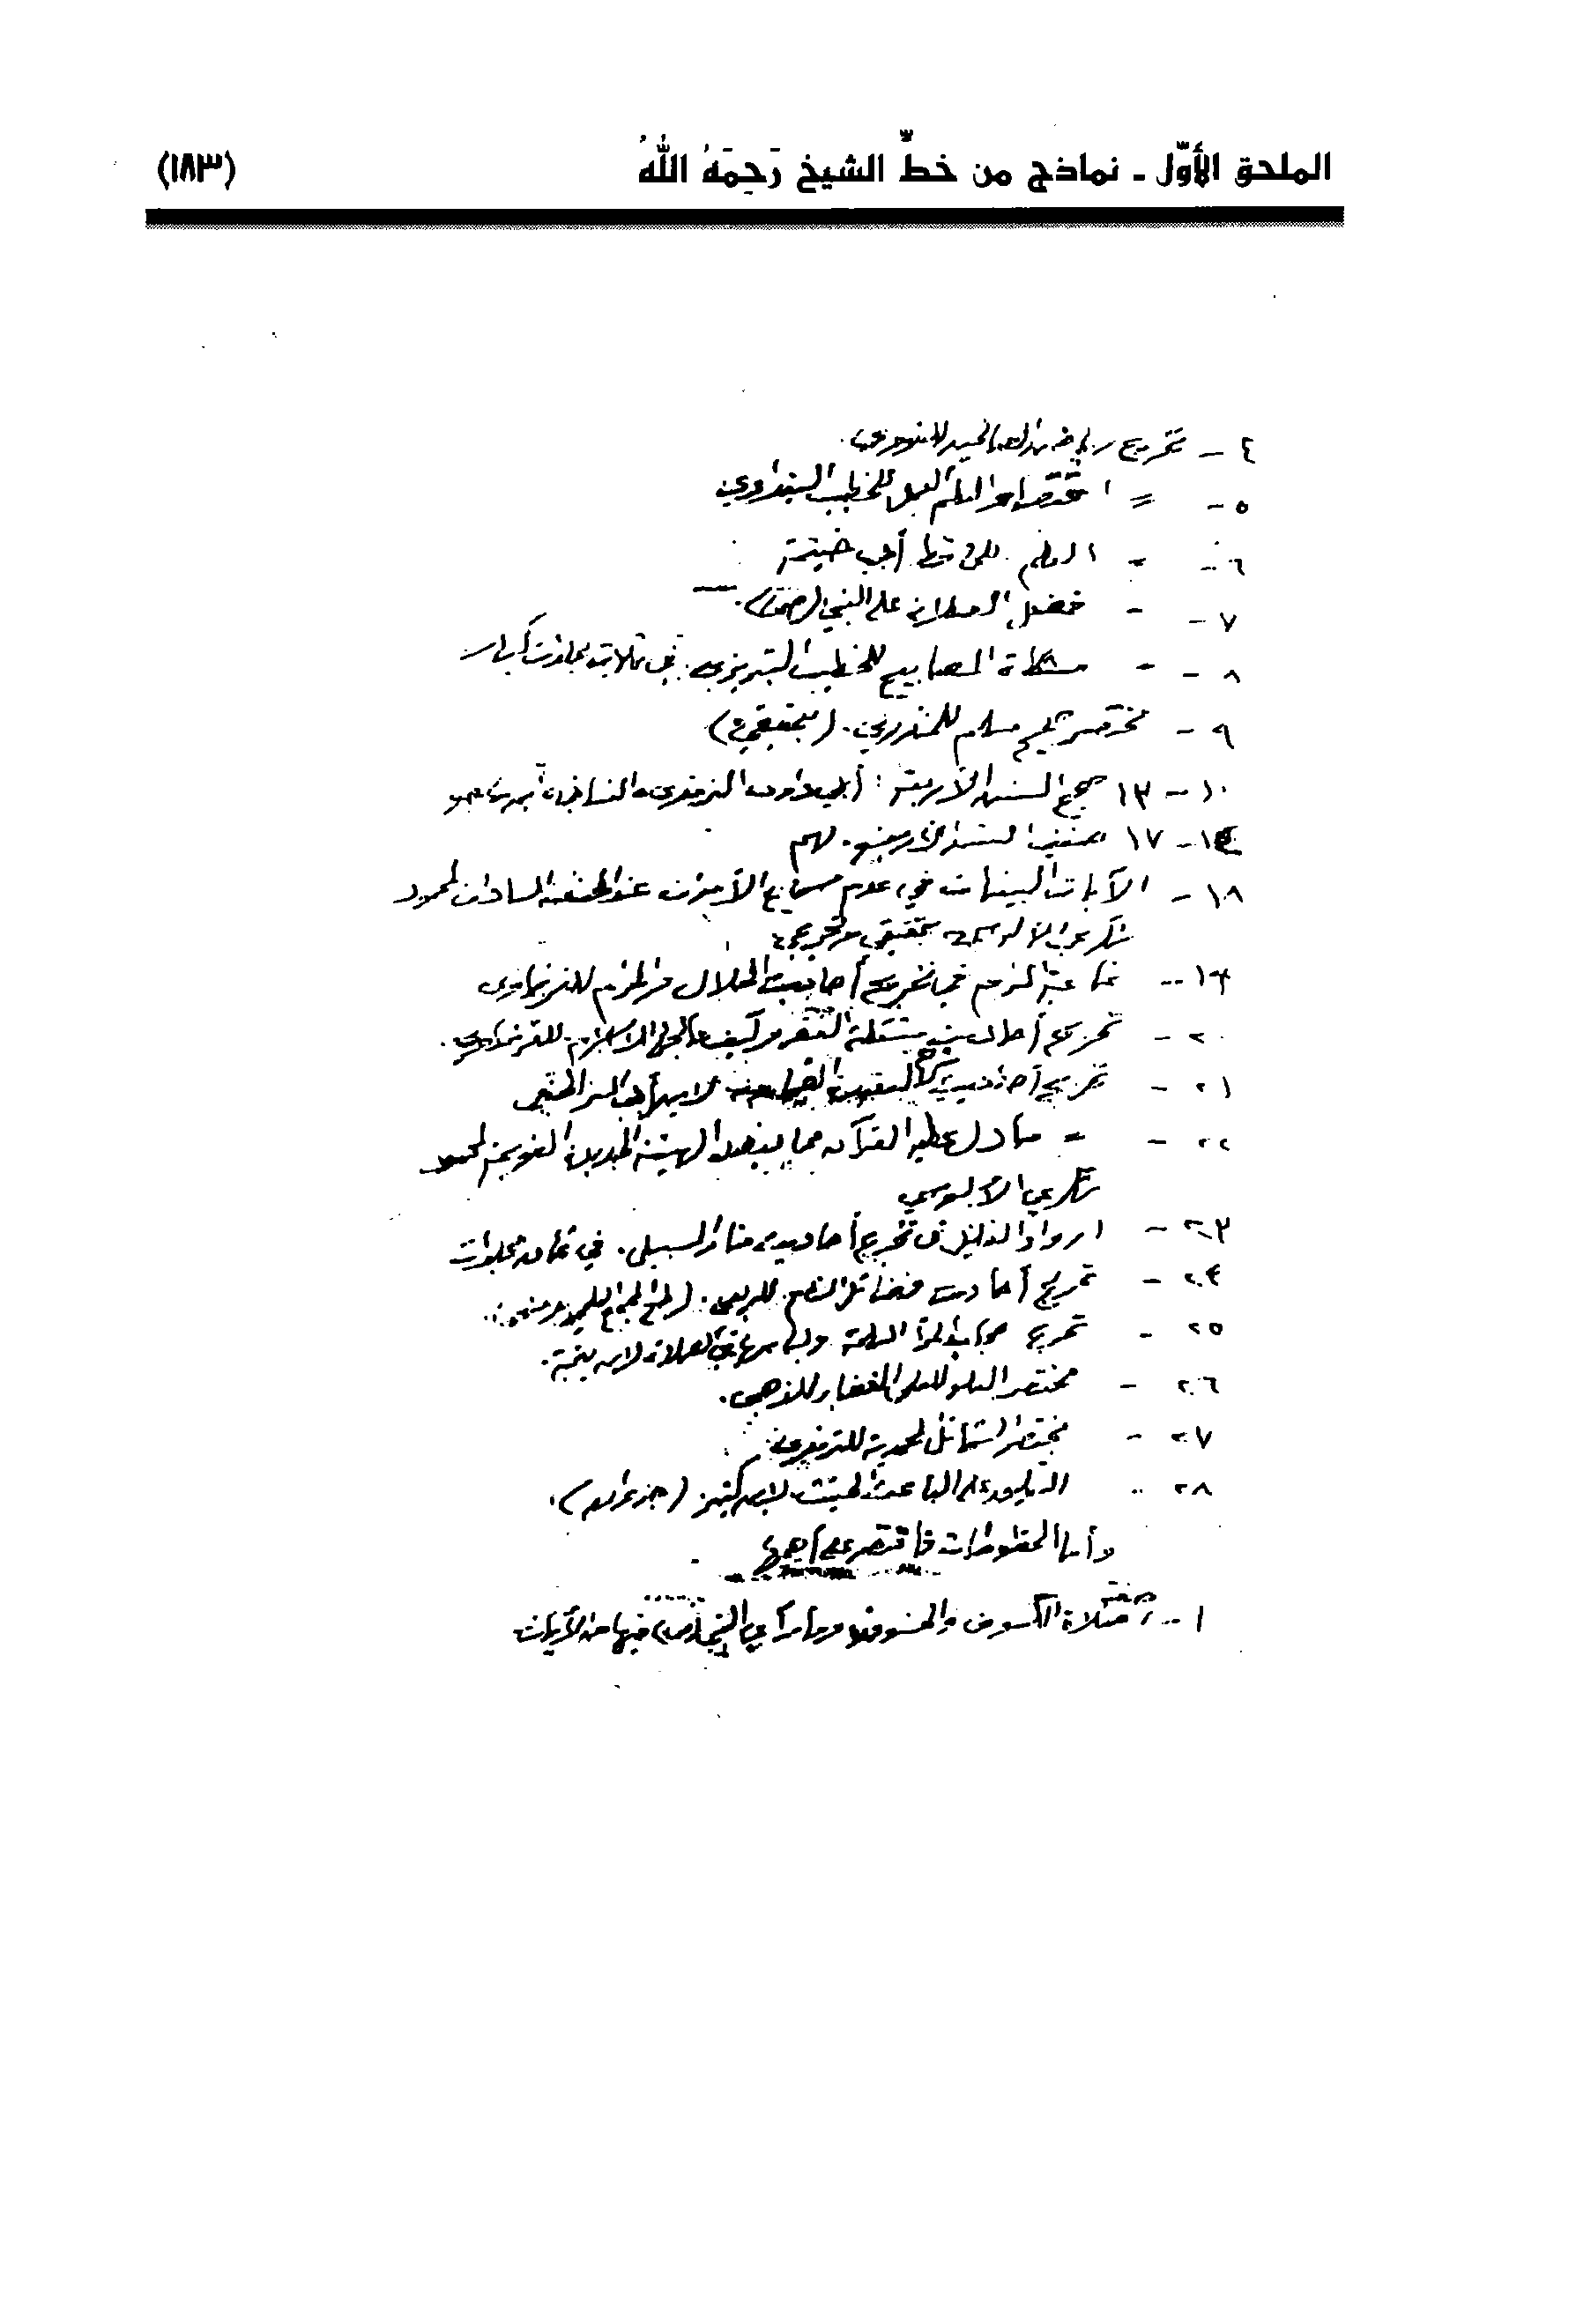 الملحق الأوّل - نماذج من خطّ الشيخ رَحِمَهُ اللهُ (١٨٣)
٤ - تخريج رياض الصالحين للنووي.
٥ - = اقتضاء العلم العمل للخطيب البغدادي
٦ - = العلم للحافظ أبي خيثمة
٧ - = فضل الصلاة على النبي (ص)
٨ - = مشكاة المصابيح للخطيب التبريزي. في ثلاث مجلدات كبار
٩ - مختصر صحيح مسلم للمنذري. (بتحقيقي)
١٠ - ١٣ صحيح السنن الأربعة: أبي داود والترمذي والنسائي وابن ماجه
١٤ - ١٧ ضعيف السنن الأربعة. لهم
١٨ - الآيات البينات في عدم سماع الأموات عند الحنفية السادات لمحمود
شكري الآلوسي بتحقيقي وتخريجي
١٩ - غاية المرام في تخريج أحاديث الحلال والحرام للقرضاوي
٢٠ - تخريج أحاديث مشكلة الفقر وكيف عالجها الإسلام. للقرضاوي.
٢١ - تخريج أحاديث شرح العقيدة الطحاوية لابن أبي العز الحنفي
٢٢ - = ما دل عليه القرآن مما يعضد الهيئة الجديدة القويمة لمحمود
شكري الآلوسي
٢٣ - إرواء الغليل في تخريج أحاديث منار السبيل. في ثمان مجلدات
٢٤ - تخريج أحاديث فضائل الشام. للربعي.
٢٥ - تخريج حجاب المرأة المسلمة ولباسها في الصلاة لابن تيمية.
٢٦ - مختصر العلو للعلي الغفار للذهبي.
٢٧ - مختصر الشمائل المحمدية للترمذي.
٢٨ - التعليق على الباعث الحثيث لابن كثير (جزءان)
وأما المخطوطات فأقتصر على أهمها
١ - صفة صلاة الكسوف والخسوف وما رأى النبي (ص) فيها من الآيات